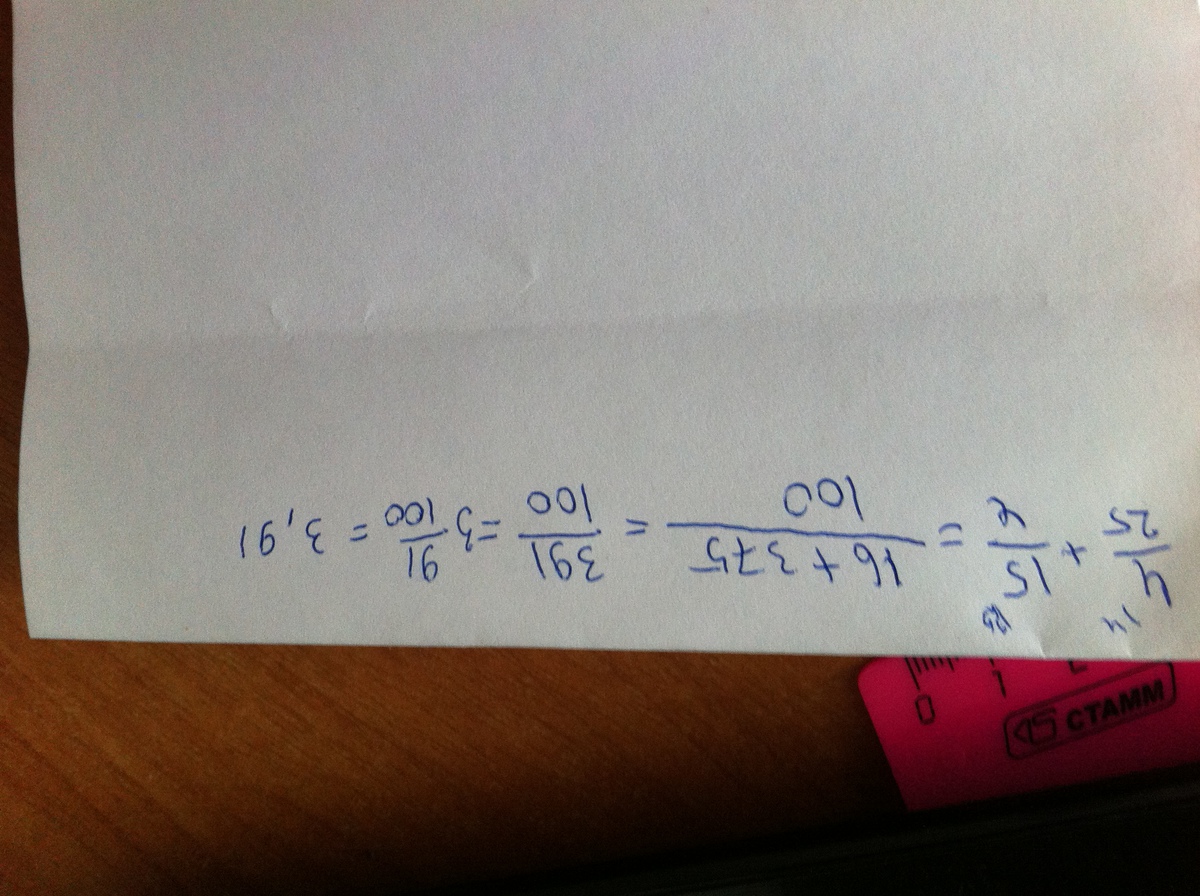 4/25 + 15/4 = (16 + 375)/100 = 391/100 = 3 91/100 = 3,91
СТАММ
0 1